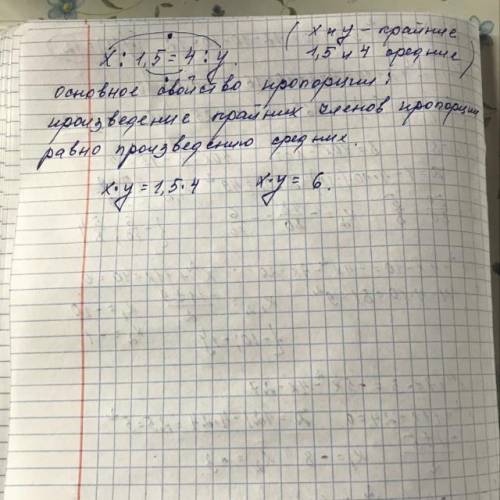 x : 1,5 = 4 : y
( x и y – крайние
1,5 и 4 средние )
основное свойство пропорции:
произведение крайних членов пропорции
равно произведению средних.
x·y = 1,5·4 x·y = 6.